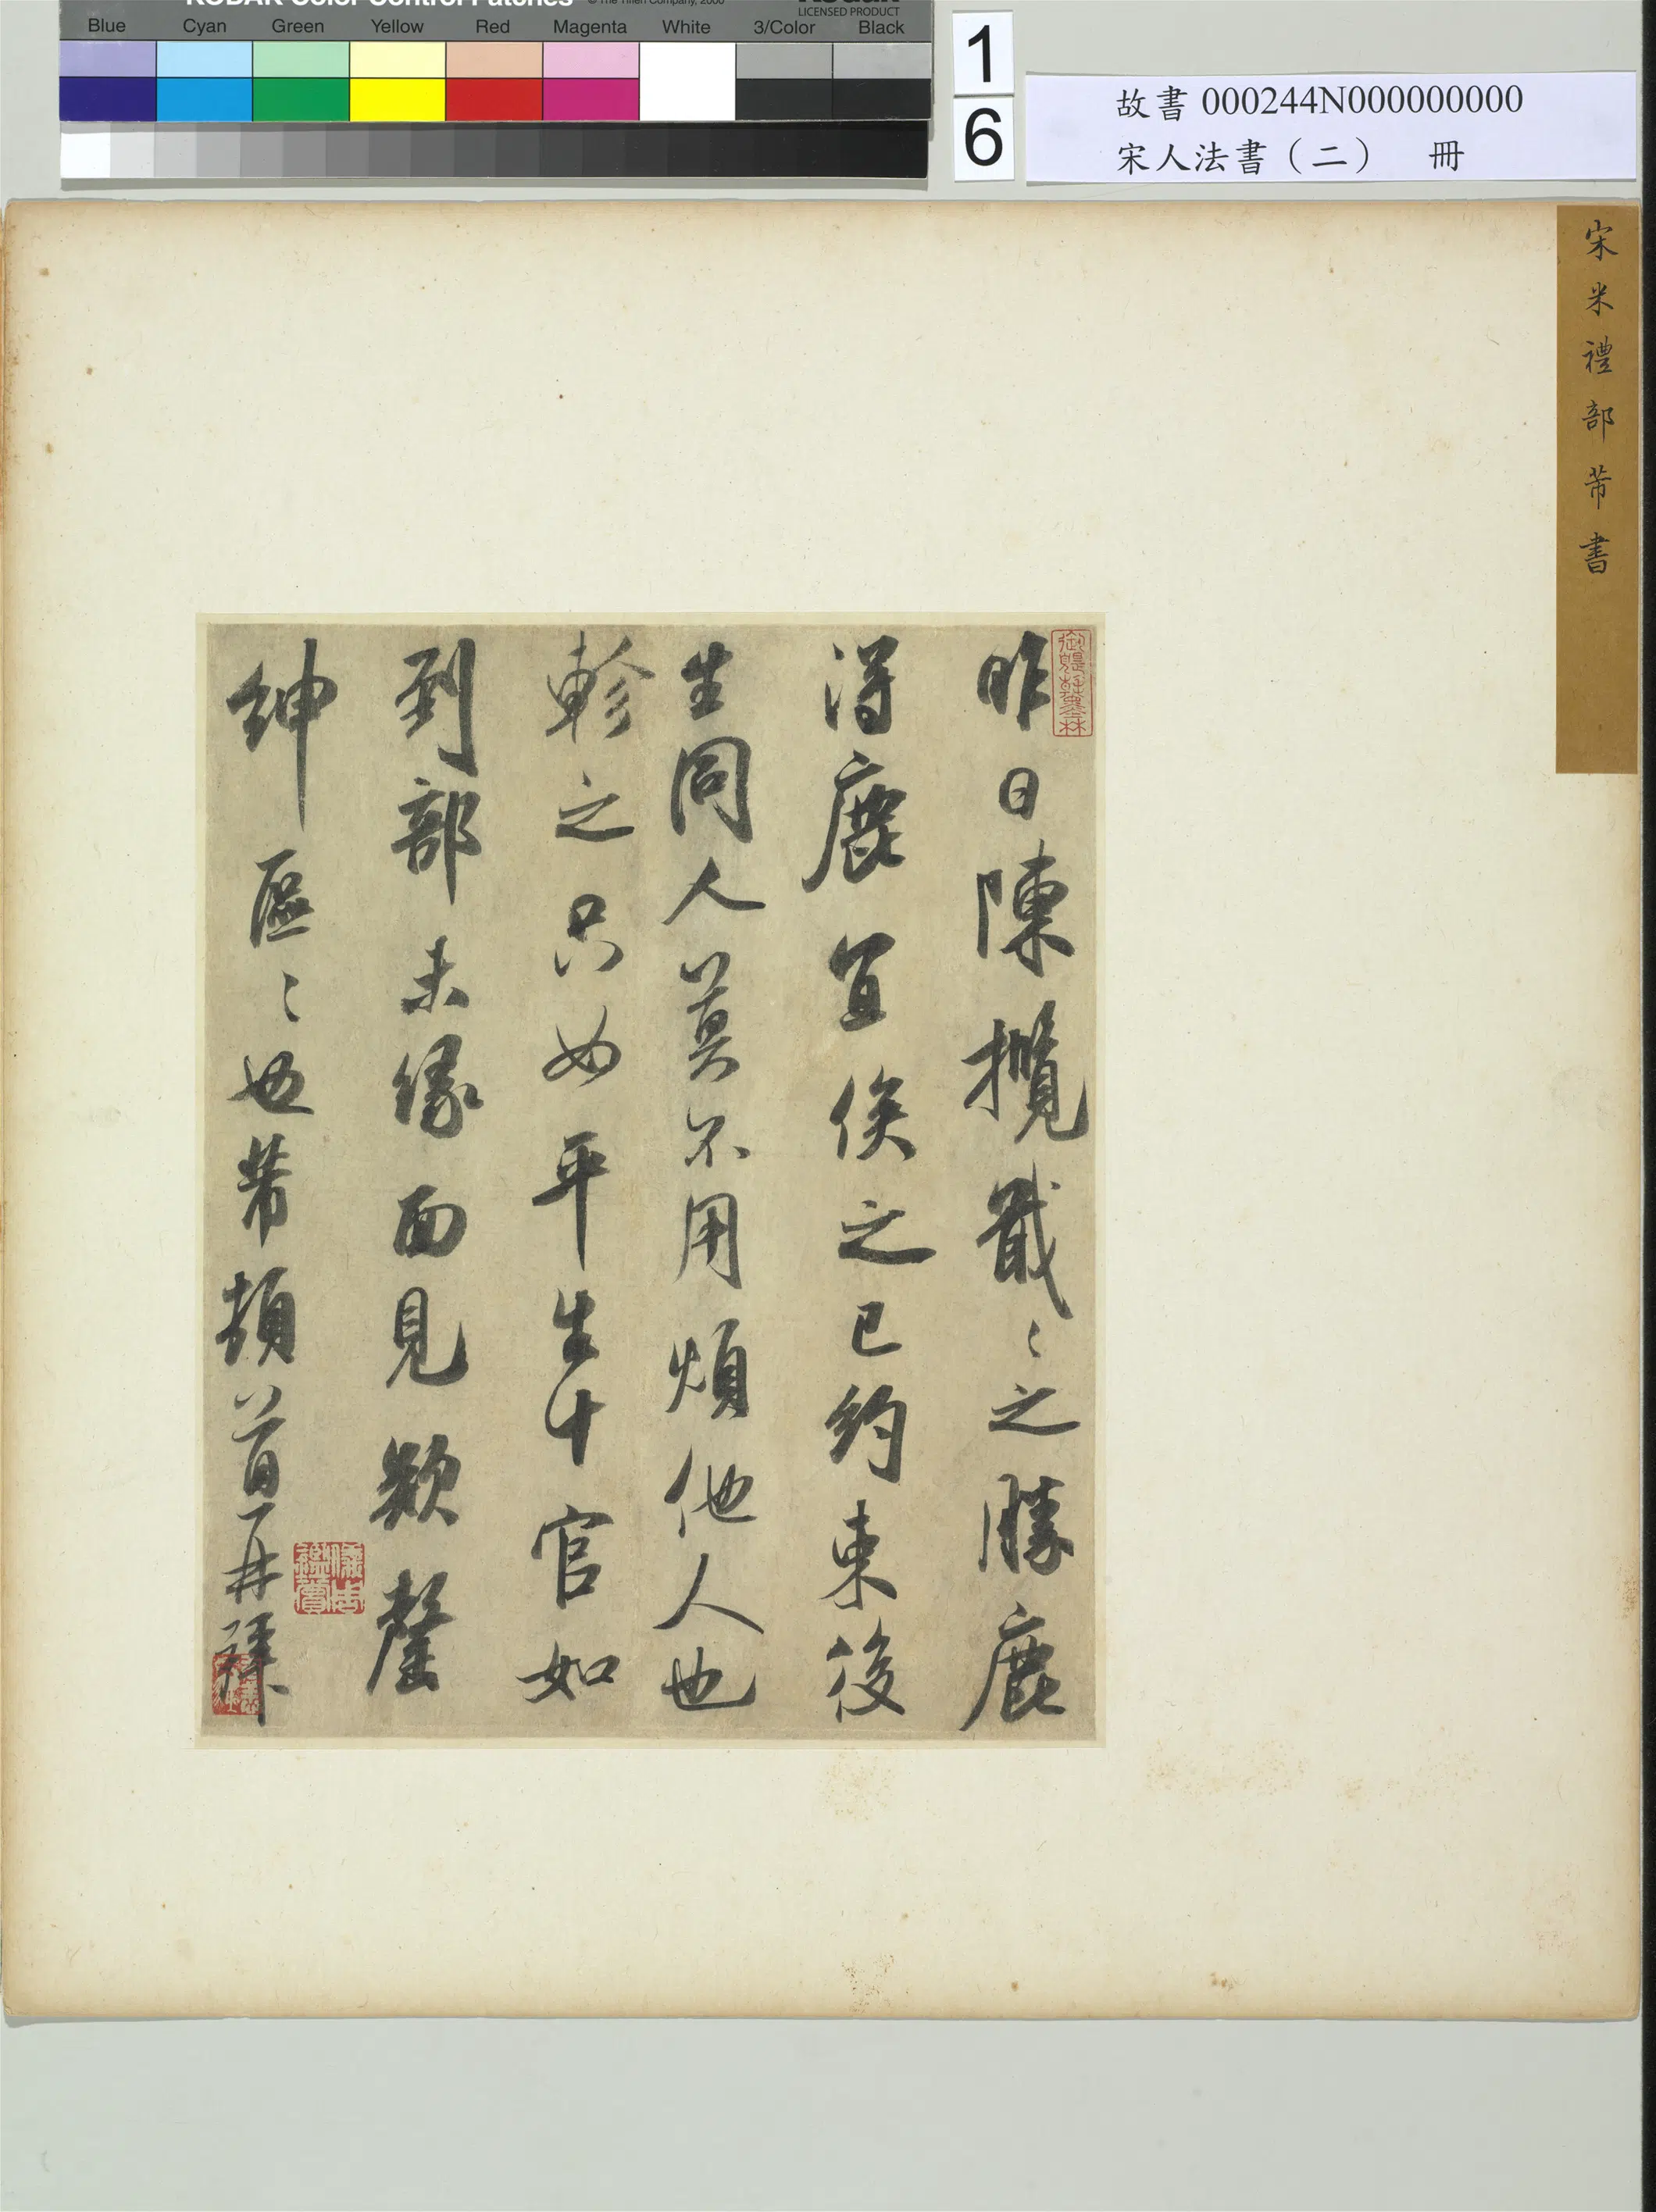 KODAK Color Control Patches
© The Tiffen Company, 2000
Kodak
LICENSED PRODUCT
Blue Cyan Green Yellow Red Magenta White 3/Color Black
1
6
故書 000244N000000000
宋人法書（二） 冊
宋米禮部芾書
昨日陳攬戢〻之勝鹿
得鹿宜俟之已約束後
生同人莫不用煩他人也
軫之只如平生十官如
到部未緣面見欵罄
紳區〻也芾頓首再拜